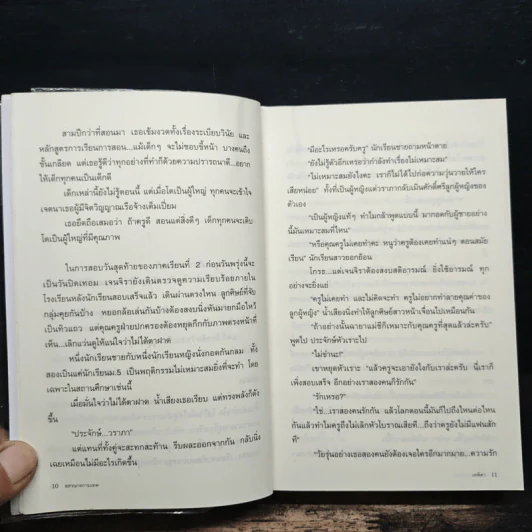 สามปีกว่าที่สอนมา เธอเข้มงวดทั้งเรื่องระเบียบวินัย และ
หลักสูตรการเรียนการสอน...แม้เด็กๆ จะไม่ชอบขี้หน้า บางคนถึง
ขั้นเกลียด แต่เธอรู้ดีว่าทุกอย่างที่ทำก็ด้วยความปรารถนาดี...อยาก
ให้เด็กทุกคนเป็นเด็กดี
เด็กเหล่านี้ยังไม่รู้ตอนนี้ แต่เมื่อโตเป็นผู้ใหญ่ ทุกคนจะเข้าใจ
เจตนาเธอผู้มีจิตวิญญาณเรือจ้างเต็มเปี่ยม
เธอยึดถือเสมอว่า ถ้าครูดี สอนแต่สิ่งดีๆ เด็กทุกคนจะเติบ
โตเป็นผู้ใหญ่ที่มีคุณภาพ
ในการสอบวันสุดท้ายของภาคเรียนที่ 2 ก่อนวันพรุ่งนี้จะ
เป็นวันปิดเทอม เจนจิรายังเดินตรวจดูความเรียบร้อยภายใน
โรงเรียนหลังนักเรียนสอบเสร็จแล้ว เดินผ่านตรงไหน ลูกศิษย์ที่จับ
กลุ่มคุยกันบ้าง หยอกล้อเล่นกันบ้างต้องสงบนิ่งหันมายกมือไหว้
เป็นทิวแถว แต่คุณครูฝ่ายปกครองต้องหยุดกึกกับภาพตรงหน้าที่
เห็น...เลิกแว่นดูให้แน่ใจว่าไม่ได้ตาฝาด
หนึ่งนักเรียนชายกับหนึ่งนักเรียนหญิงนั่งกอดกันกลม ทั้ง
สองเป็นแค่นักเรียนม.5 เป็นพฤติกรรมไม่เหมาะสมยิ่งที่จะทำ โดย
เฉพาะในสถานศึกษาเช่นนี้
เมื่อมั่นใจว่าไม่ได้ตาฝาด น้ำเสียงเธอเรียบ แต่ทรงพลังก็ดัง
ขึ้น
"ประจักษ์...วราภา"
แต่แทนที่ทั้งคู่จะสะทกสะท้าน รีบผละออกจากกัน กลับนั่ง
เฉยเหมือนไม่มีอะไรเกิดขึ้น
10
"มีอะไรเหรอครับครู" นักเรียนชายถามหน้าตาย
"ยังไม่รู้ตัวอีกเหรอว่ากำลังทำเรื่องไม่เหมาะสม"
"ไม่เหมาะสมยังไงคะ เราก็ไม่ได้ไปก่อความวุ่นวายให้ใคร
เสียหน่อย" ทั้งที่เป็นผู้หญิงแต่วราภากลับเมินศักดิ์ศรีลูกผู้หญิงของ
ตัวเอง
"เป็นผู้หญิงแท้ๆ ทำไมกล้าพูดแบบนี้ มากอดกับผู้ชายอย่าง
นี้มันเหมาะสมที่ไหน"
"หรือคุณครูไม่เคยทำคะ หนูว่าครูต้องเคยทำแน่ๆ ตอนสมัย
เรียน" นักเรียนสาวยอกย้อน
โกรธ...แต่เจนจิราต้องสงบสติอารมณ์ ยิ่งใช้อารมณ์ ทุก
อย่างจะยิ่งแย่
"ครูไม่เคยทำ และไม่คิดจะทำ ครูไม่อยากทำลายคุณค่าของ
ลูกผู้หญิง" น้ำเสียงนี่งทำให้ลูกศิษย์สาวหน้าเจื่อนไปเหมือนกัน
"ถ้าอย่างนั้นฉายาแม่ชีก็เหมาะกับคุณครูที่สุดแล้วล่ะครับ"
พูดไป ประจักษ์หัวเราะไป
"ไม่ขำนะ!"
เขาหยุดหัวเราะ "แล้วครูจะเอายังไงกับเราล่ะครับ นี่เราก็
เพิ่งสอบเสร็จ อีกอย่างเราสองคนก็รักกัน"
"รักเหรอ?"
"ใช่...เราสองคนรักกัน แล้วโลกตอนนี้มันก็ไปถึงไหนต่อไหน
กันแล้วทำไมครูถึงไม่เลิกหัวโบราณเสียที...ถึงว่าครูยังไม่มีแฟนสัก
ที"
"วัยรุ่นอย่างเธอสองคนยังต้องเจอใครอีกมากมาย...ความรัก
11